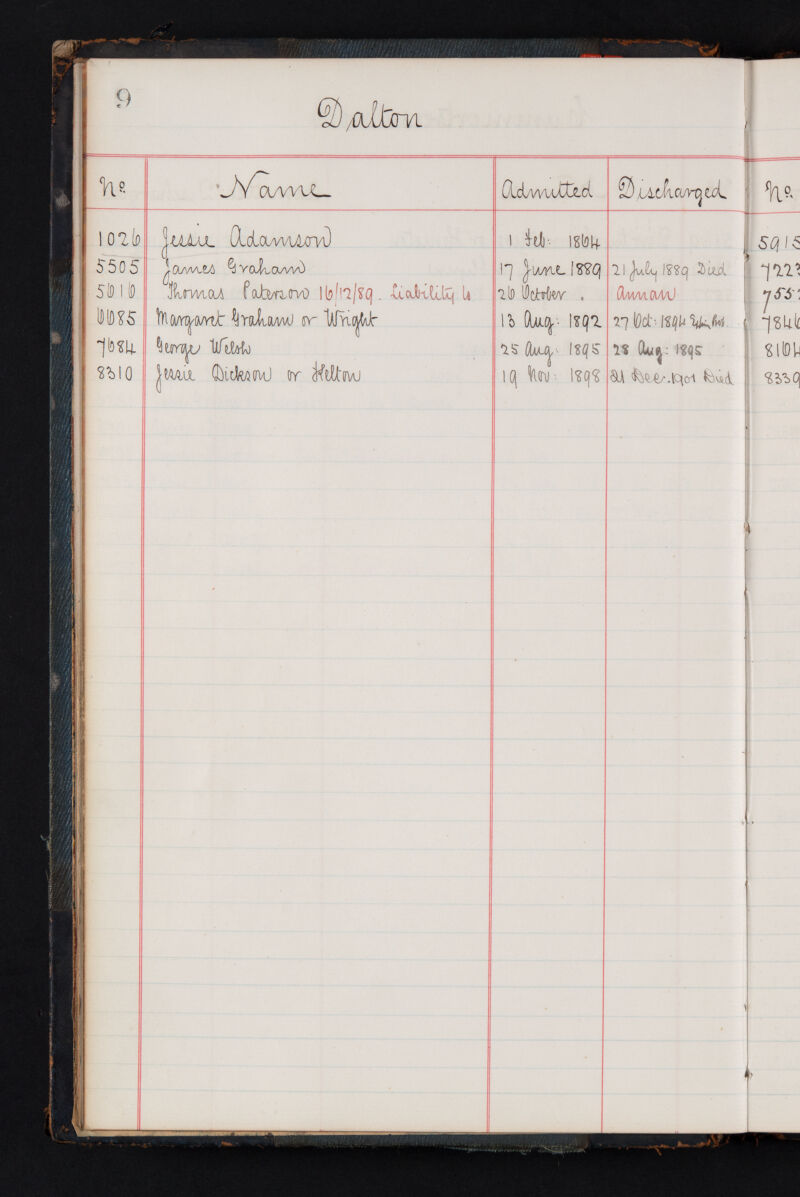 9
Dalton
No. Name Admitted Discharged No.
1026 Jessie Adamson 1 Feb: 1864 5915
5505 James Graham 17 June 1889 21 July 1889 Died 722
5616 Thomas Paterson 16/12/89. Liability to 26 October . Annan 755
6685 Margaret Graham or Wright 13 Aug: 1892 27 Oct: 1894 784
7684 George Welsh 25 Aug: 1895 28 Aug: 1895 8164
8310 Jessie Dickson or Helton 19 Nov: 1898 21 Dec. 1901 Died 8339